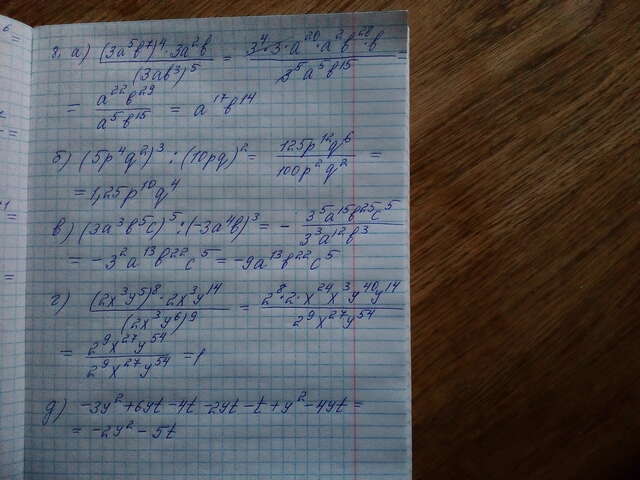 6
=
=
+1
=
=
8, а) (3a⁵b⁷)⁴·3a²b / (3ab³)⁵ = 3⁴·3·a²⁰·a²b²⁸·b / 3⁵a⁵b¹⁵ =
= a²²b²⁹ / a⁵b¹⁵ = a¹⁷b¹⁴
б) (5p⁴q²)³ : (10pq)² = 125p¹²q⁶ / 100p²q² =
= 1,25p¹⁰q⁴
в) (3a³b⁵c)⁵ : (-3a⁴b)³ = - 3⁵a¹⁵b²⁵c⁵ / 3³a¹²b³
= -3²a¹³b²²c⁵ = -9a¹³b²²c⁵
г) (2x³y⁵)⁸·2x³y¹⁴ / (2x³y⁶)⁹ = 2⁸·2·x²⁴x³y⁴⁰y¹⁴ / 2⁹x²⁷y⁵⁴
= 2⁹x²⁷y⁵⁴ / 2⁹x²⁷y⁵⁴ = 1
д) -3y²+6yt-4t-2yt-t+y²-4yt=
= -2y²-5t